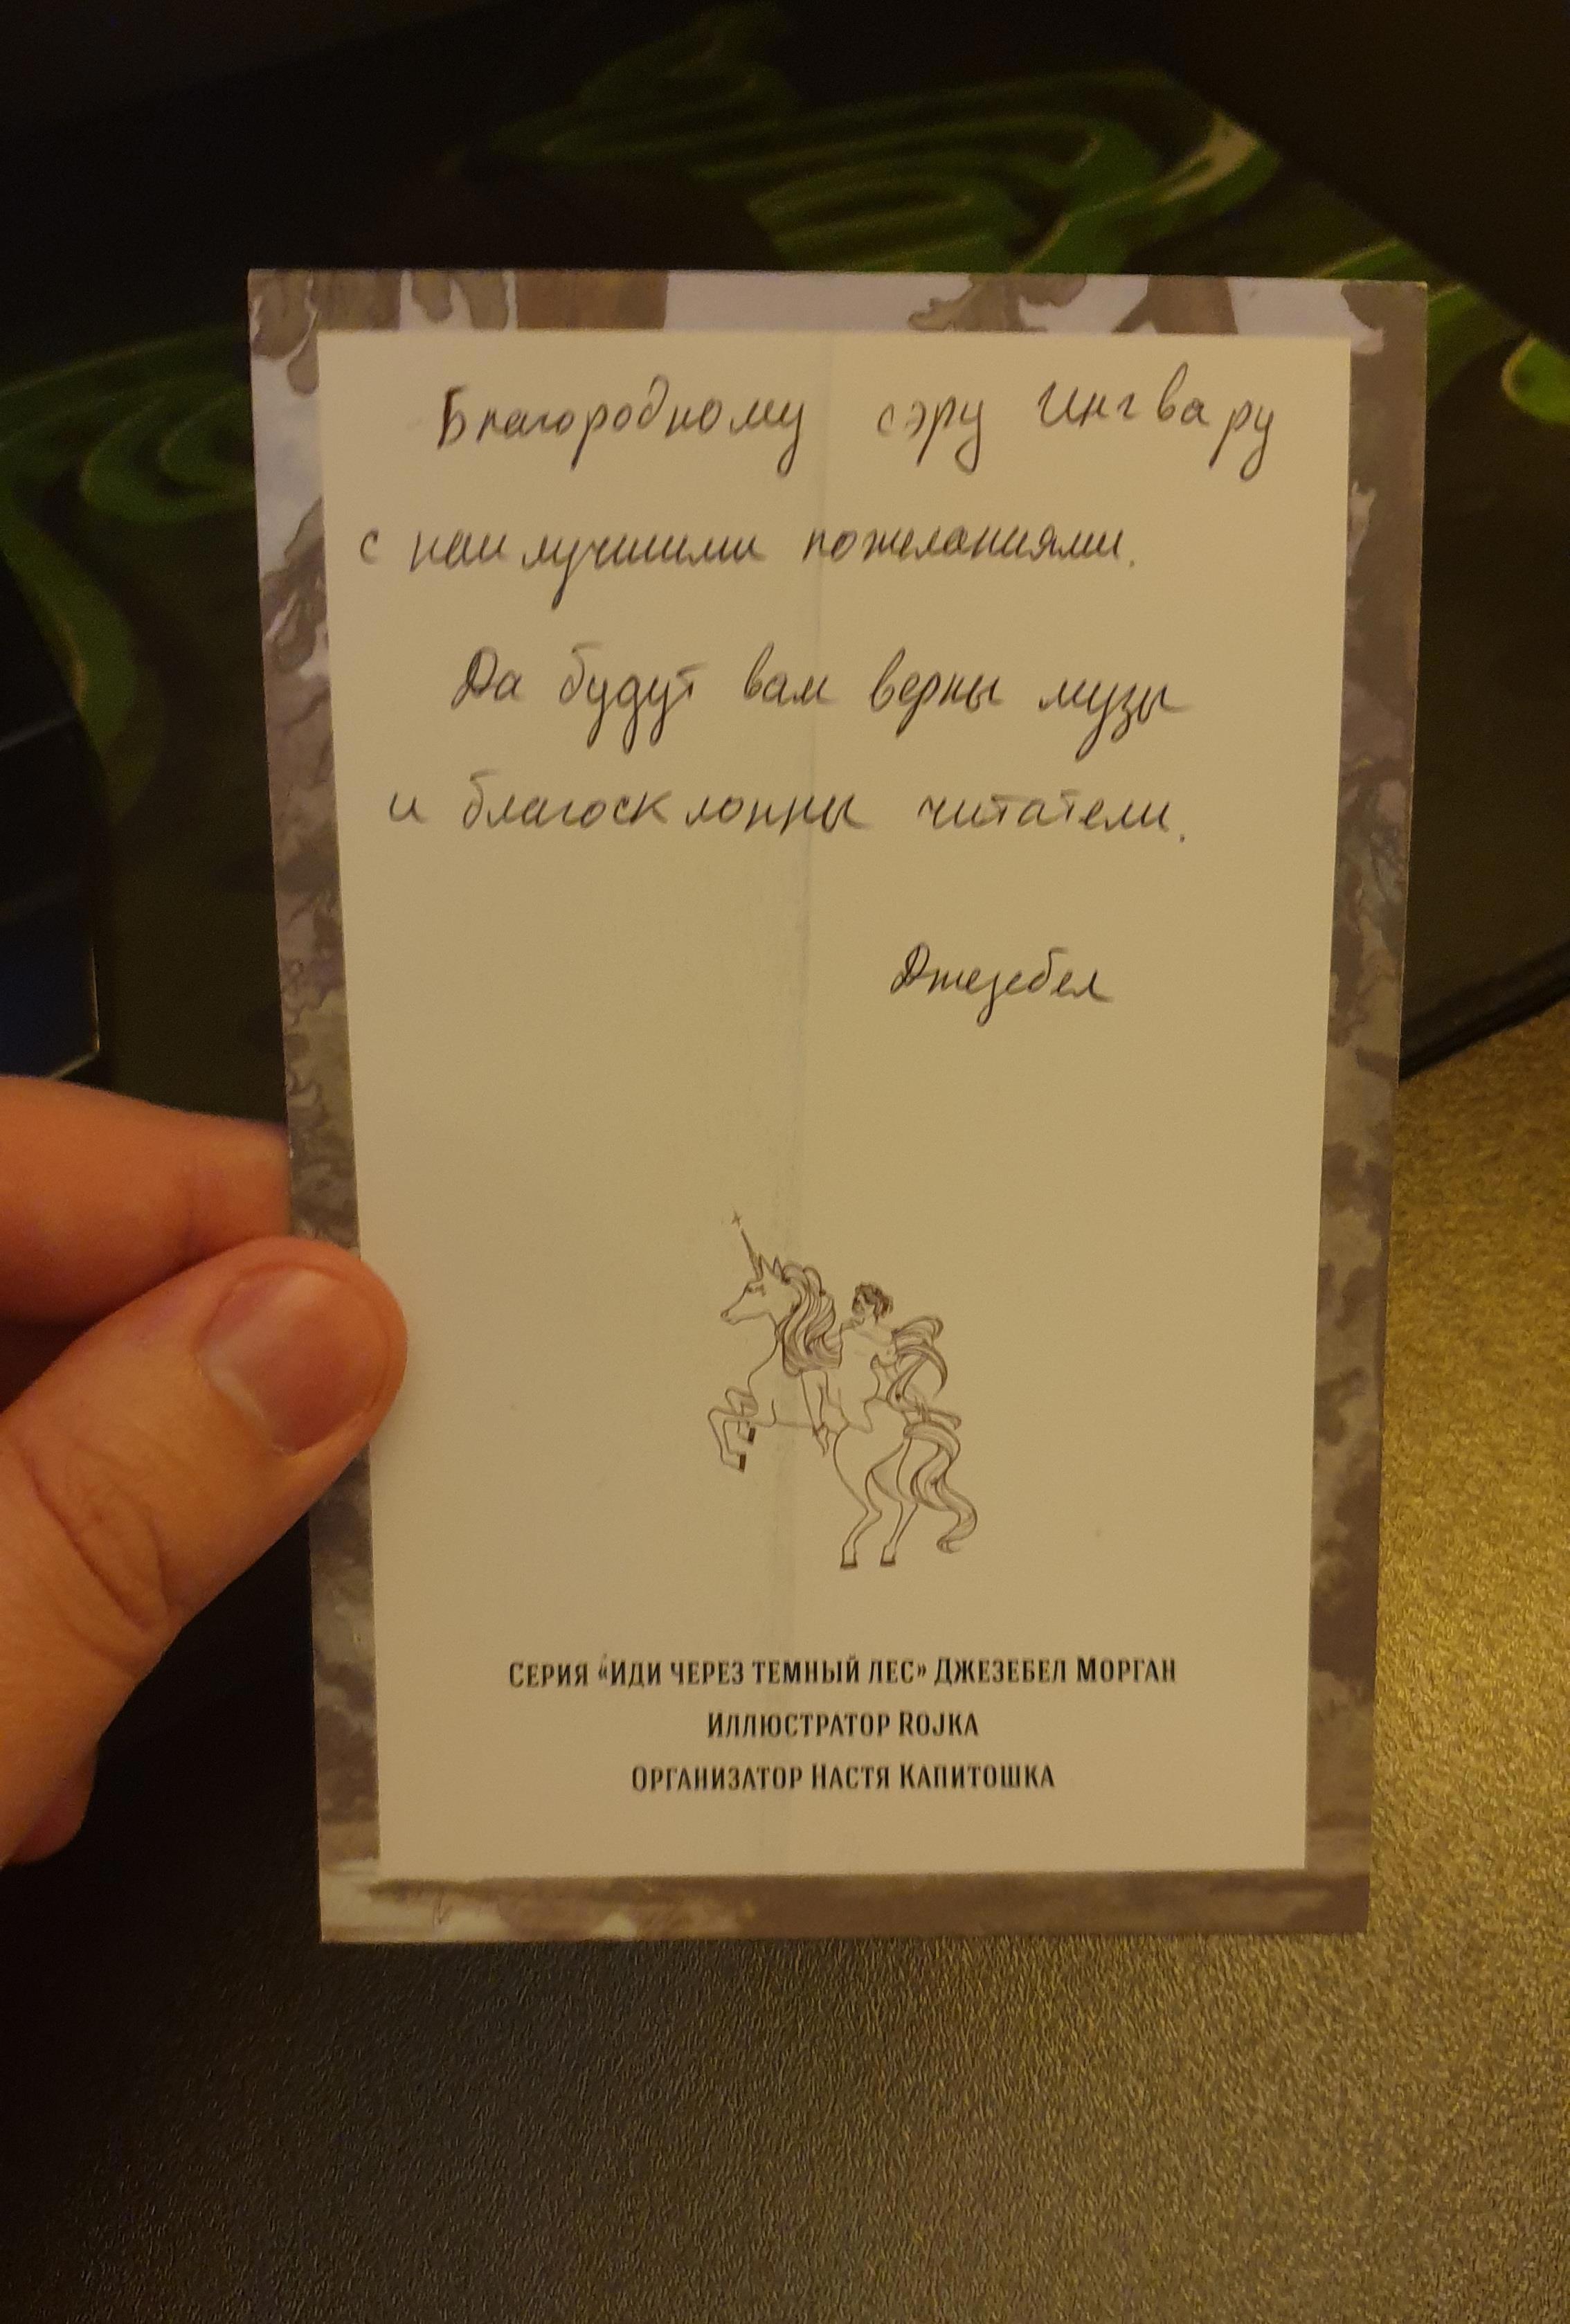 Благородному сэру Ингвару
с наилучшими пожеланиями.
Да будут вам верны музы
и благосклонны читатели.
Джезебел
Серия «Иди через темный лес» Джезебел Морган
Иллюстратор Rojka
Организатор Настя Капитошка